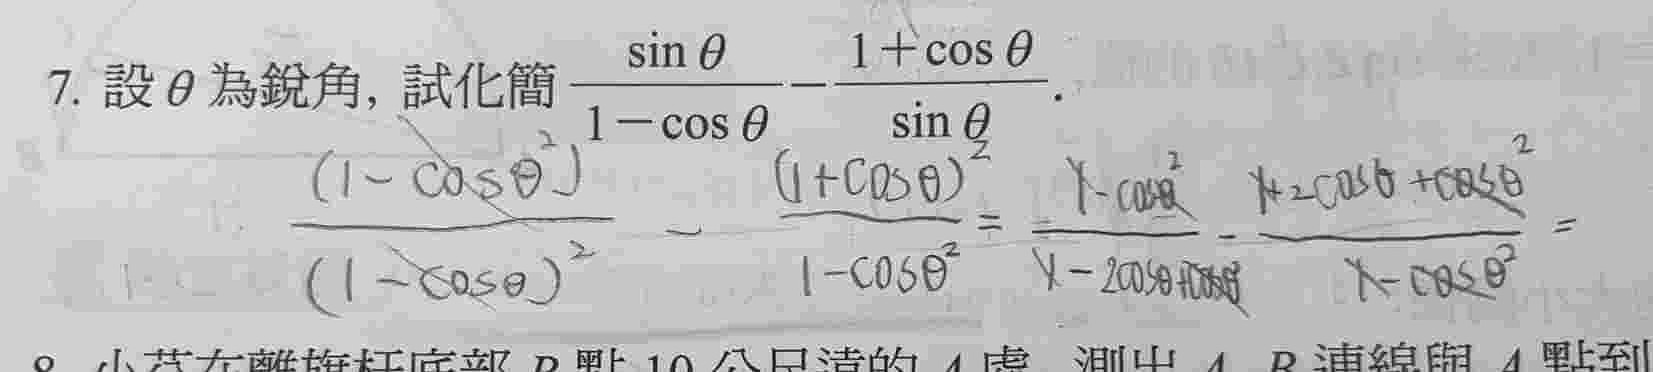 7. 設 θ 為銳角, 試化簡 \frac{sin θ}{1－cos θ} － \frac{1＋cos θ}{sin θ} .
\frac{(1-cosθ^2)}{(1-cosθ)^2} - \frac{(1+cosθ)^2}{1-cosθ^2} = \frac{1-cosθ^2}{1-2cosθ+cosθ^2} - \frac{1+2cosθ+cosθ^2}{1-cosθ^2} =
8. 小芬在離旗杆底部 B 點 10 公尺遠的 A 處, 測出 A、B 連線與 A 點到